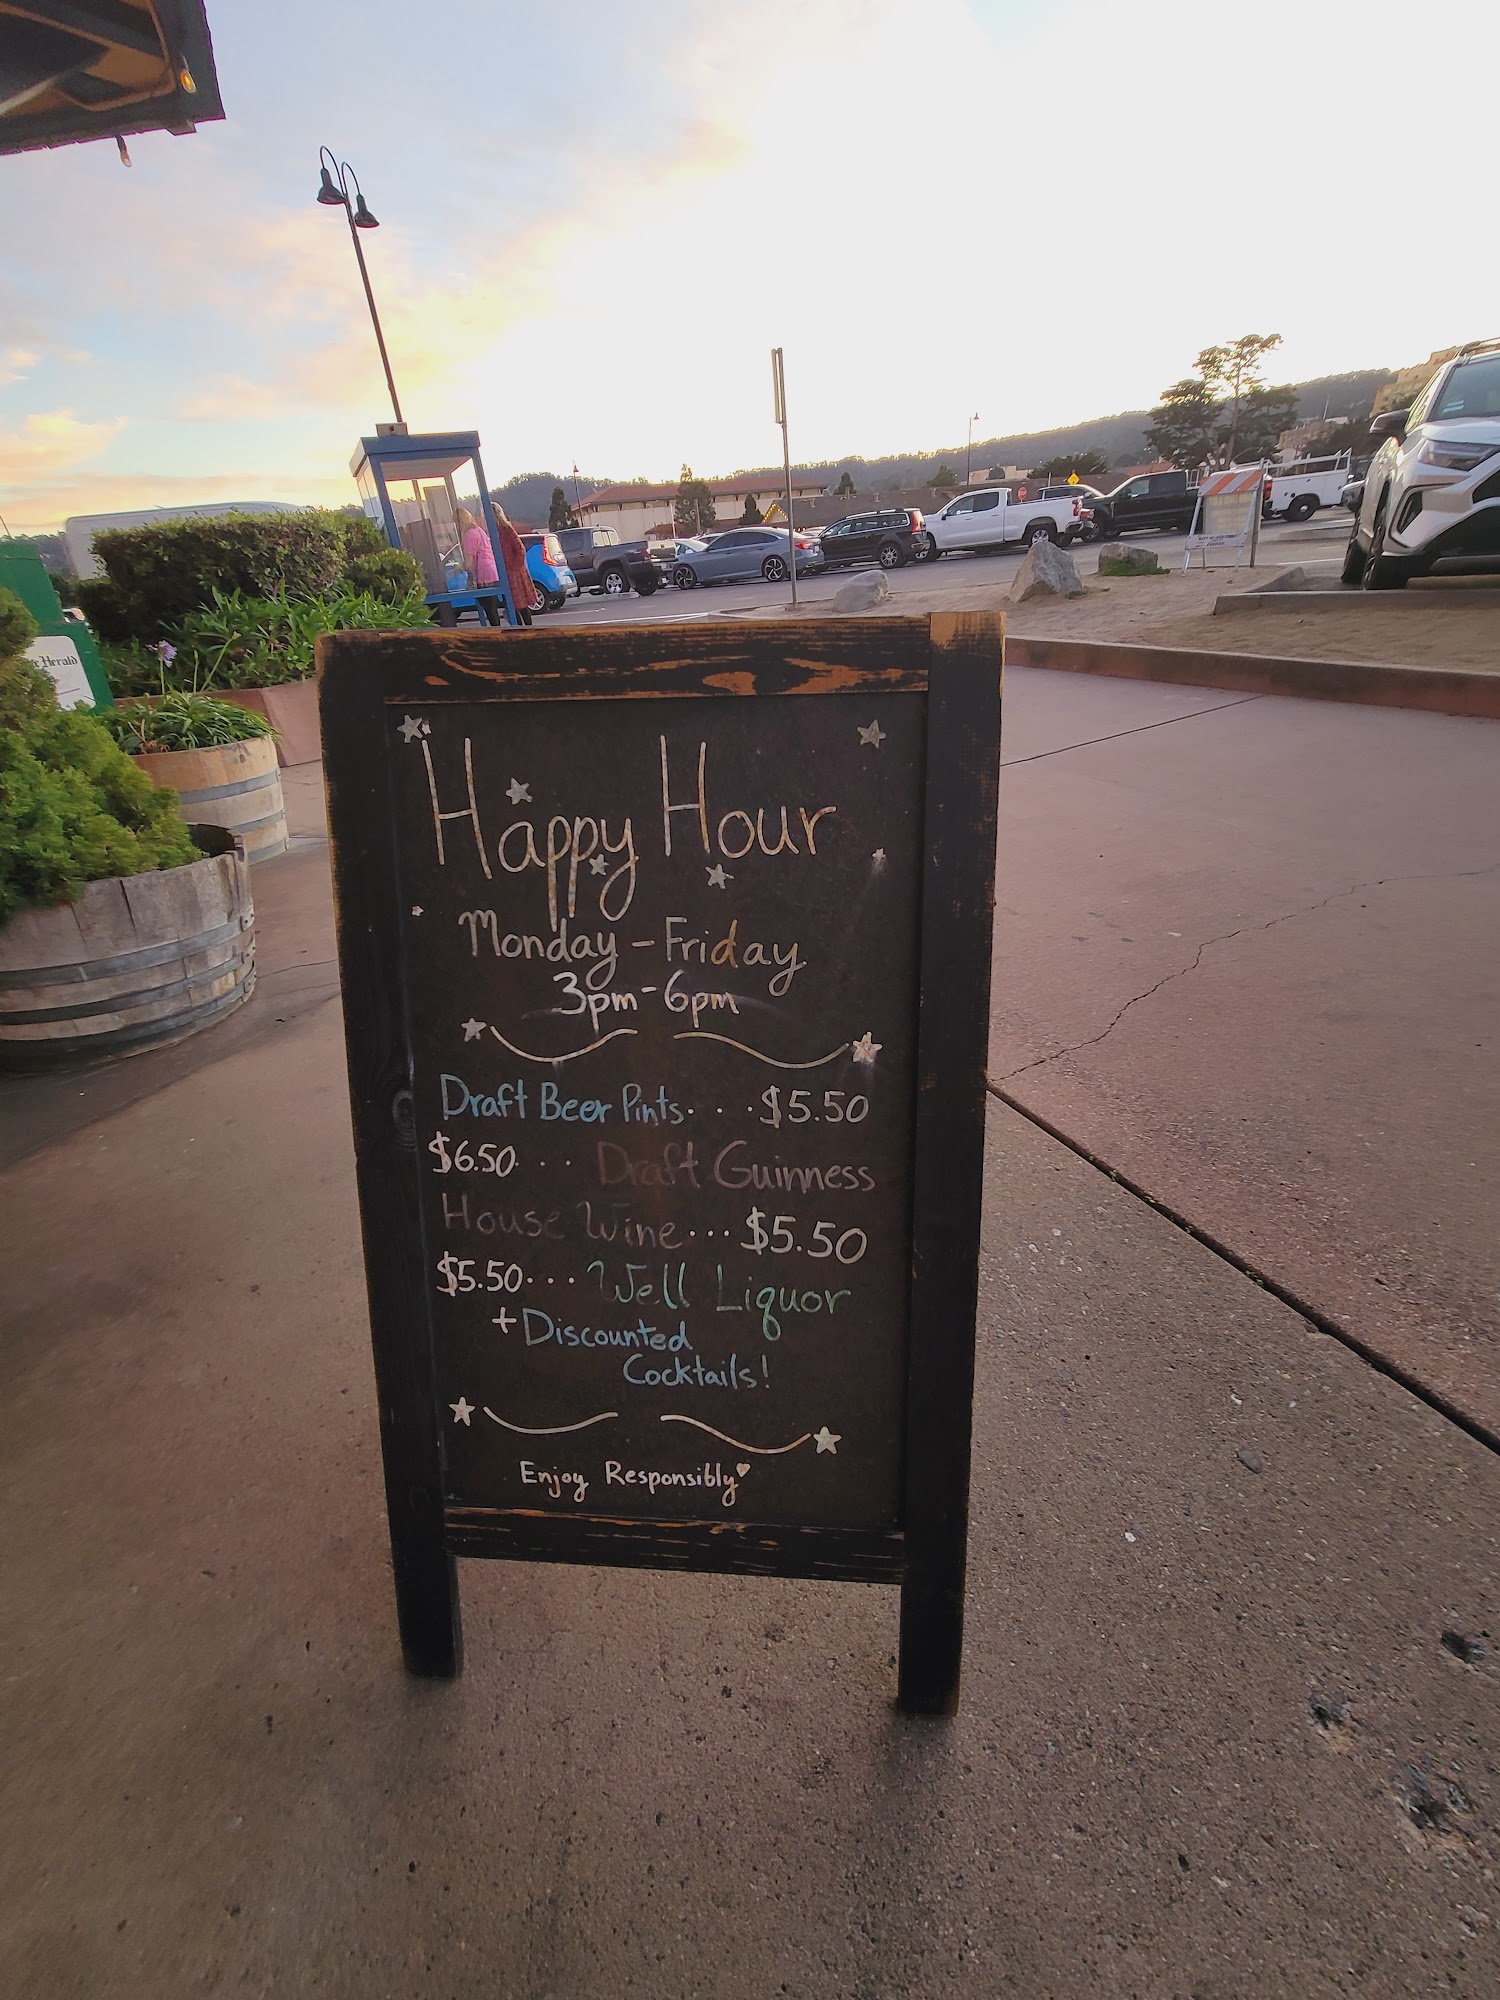 Happy Hour
Monday - Friday
3pm - 6pm
Draft Beer Pints . . . $5.50
$6.50 . . . Draft Guinness
House Wine ... $5.50
$5.50 . . . Well Liquor
+ Discounted
Cocktails!
Enjoy Responsibly
Herald